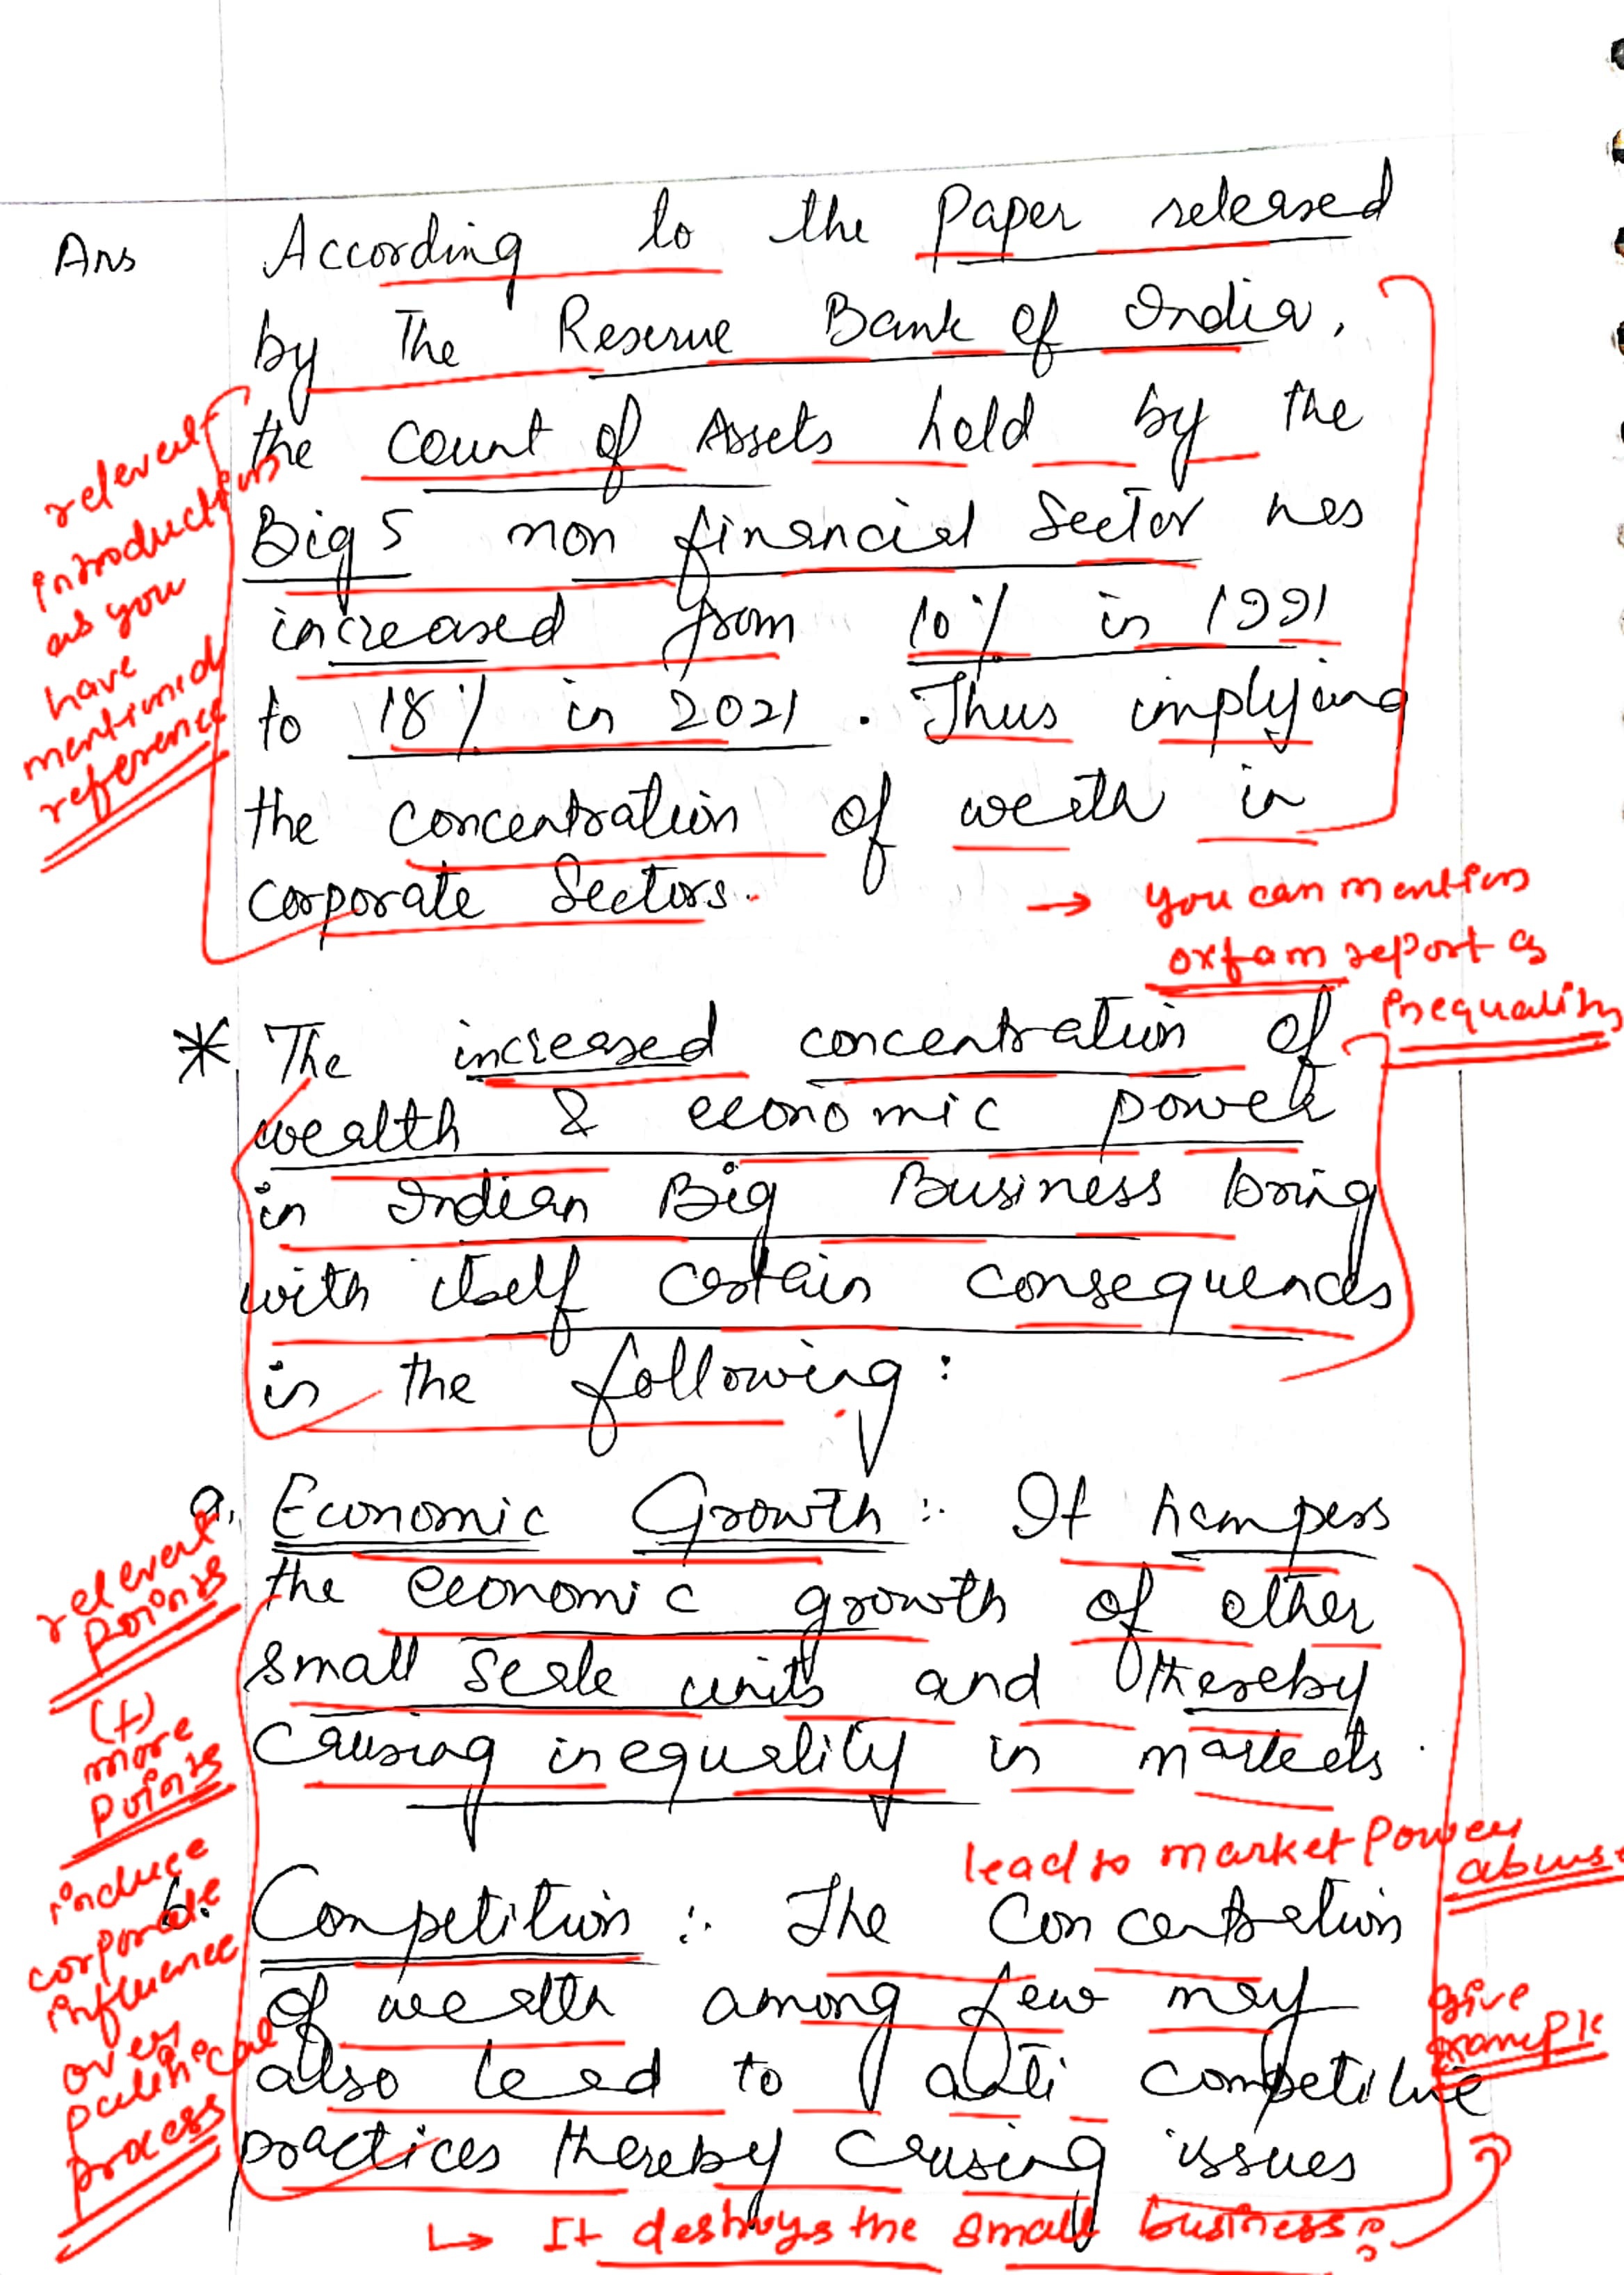 Ans According to the Paper released
by The Reserve Bank of India,
the count of Assets held by the
Big 5 non financial Sector has
increased from 10% in 1991
to 18% in 2021. Thus implying
the concentration of wealth in
corporate Sectors.
relevant
introduction
as you
have
mentioned
reference
→ you can mention
oxfam report as
inequality
* The increased concentration of
wealth & economic power
in Indian Big Business bring
with itself certain consequences
in the following:
a. Economic Growth :- It hampers
the economic growth of other
small scale units and thereby
causing inequality in markets.
relevant
points
(+)
more
points
induce
corporate
influence
over
political
process
lead to market power
abuse
b. Competition :- The Concentration
of wealth among few may
also lead to anti competitive
practices thereby causing issues
give
example
↳ It destroys the small business